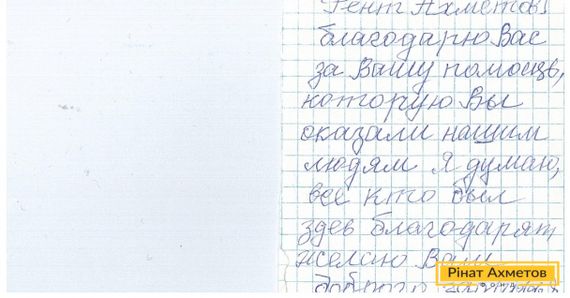 Рент Ахметов!
благодарю Вас
за Вашу помощь,
которую Вы
оказали нашим
людям Я думаю,
все кто был
здев благодарят
желаю Вам
доброго
Рінат Ахметов